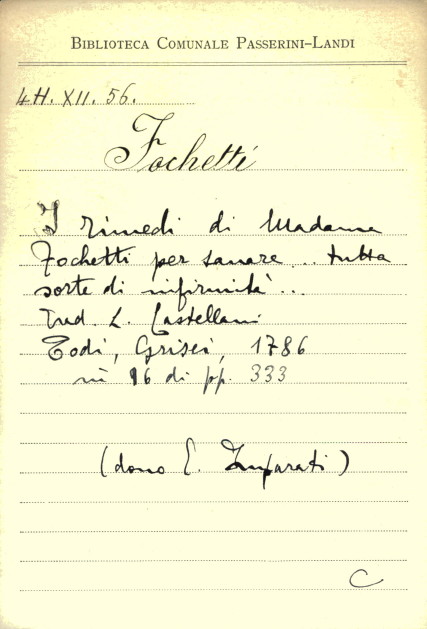 BIBLIOTECA COMUNALE PASSERINI-LANDI
4H. XII. 56.
Fochetti
I rimedi di Madama
Fochetti per sanare .. tutta
sorte di infirmità ..
Trad. L. Castellani
Todi, Grisei, 1786
in 16 di pp. 333
(dono E. Imparati)
C